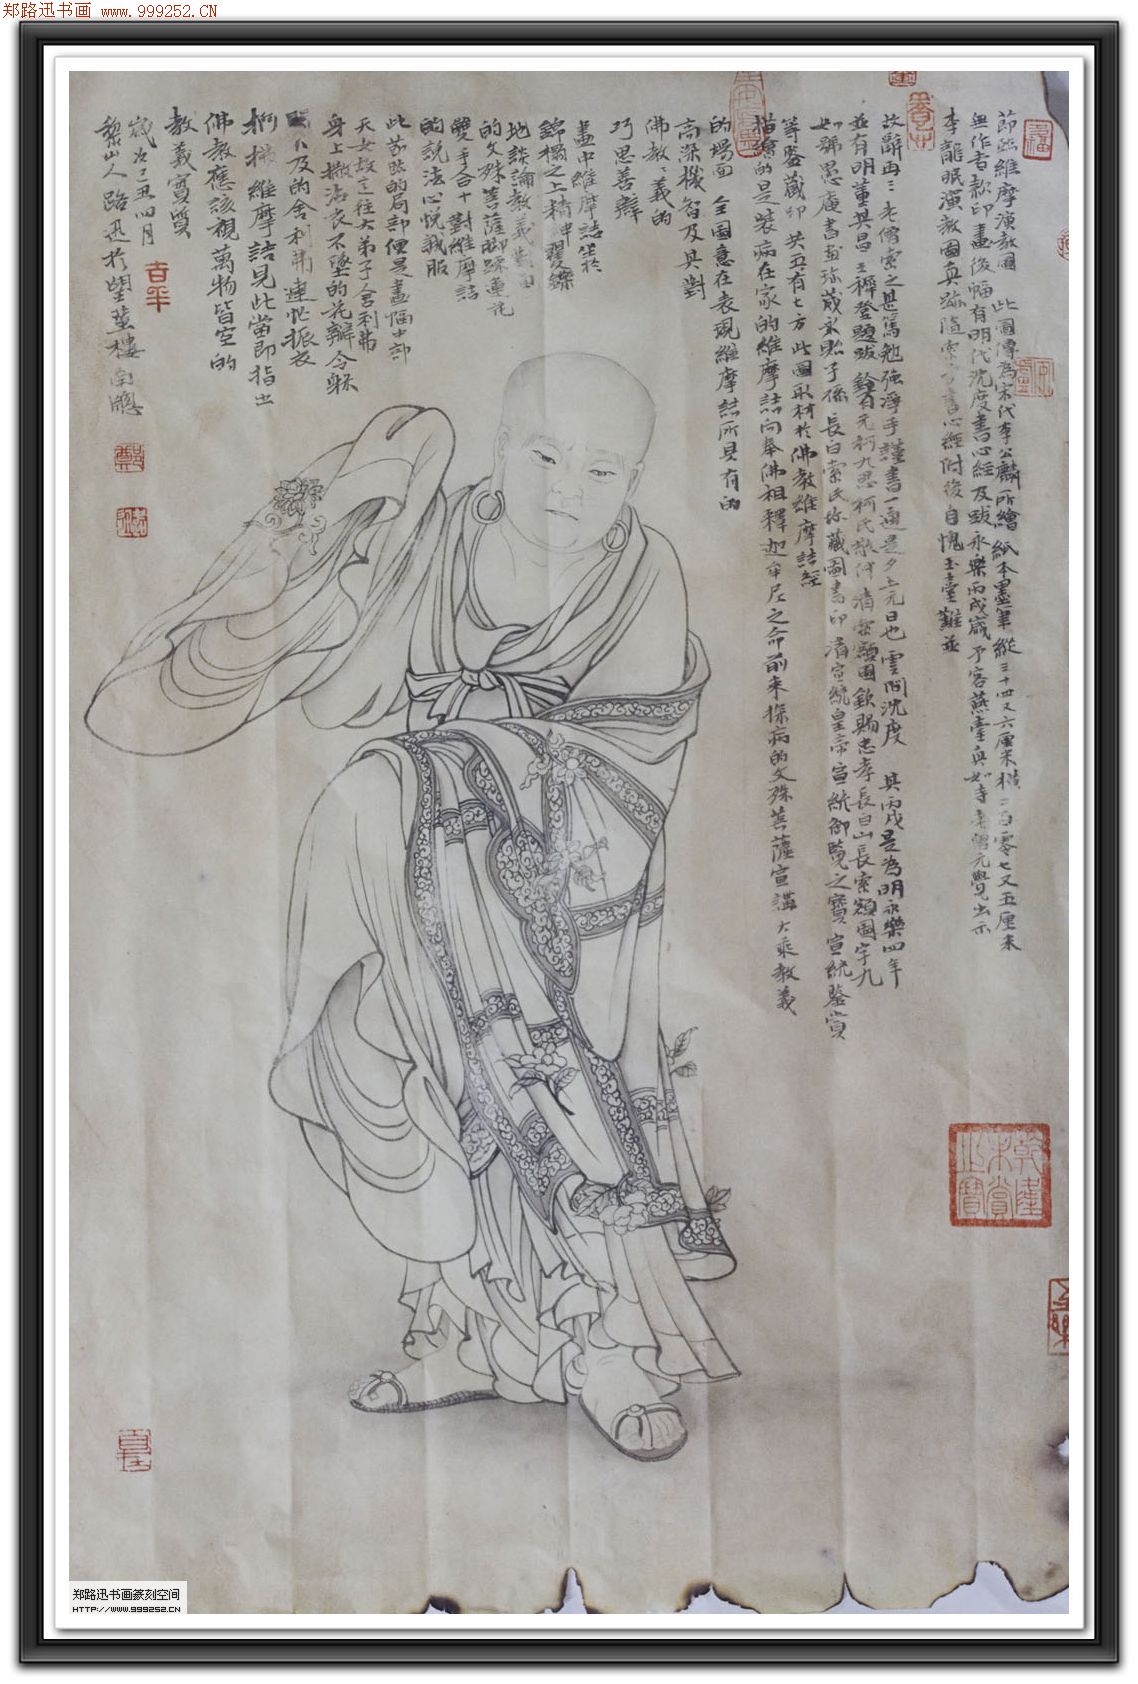 郑路迅书画 www.999252.CN
節臨維摩演教圖 此圖傳為宋代李公麟所繪紙本墨筆縱三十四又六厘米橫二百零七又五厘米
無作者款印畫後幅有明代沈度書心經及跋永樂丙戌歲予客燕臺真如寺老僧元覺出示
李龍眠演教圖真跡隨索書心經附後自愧玉堂難並
故辭再三老僧索之甚篤勉強淨手謹書一通是夕上元日也雲間沈度 其丙戌是為明永樂四年
並有明董其昌王穉登題跋鈐有元柯九思柯氏敬仲清索額圖欽賜忠孝長白山長索額圖字九
如號愚庵書畫珍藏永貽子孫長白索氏珍藏圖書印清宣統皇帝宣統御覽之寶宣統鑒賞
等鑒藏印共五有七方此圖取材於佛教維摩詰經
描繪的是裝病在家的維摩詰向奉佛祖釋迦牟尼之命前來探病的文殊菩薩宣講大乘教義
的場面 全圖意在表現維摩詰所具有的
高深機智及其對
佛教教義的
巧思善辯
畫中維摩詰坐於
錦榻之上精神矍鑠
地談論教義對面
的文殊菩薩腳踩蓮花
雙手合十對維摩詰
的說法心悅誠服
此節臨的局部便是畫幅中部
天女故意往大弟子舍利弗
身上撒沾衣不墜的花瓣令躲
不及的舍利弗連忙振衣
抖撒維摩詰見此當即指出
佛教應該視萬物皆空的
教義實質
歲次己丑四月
黎山人路迅於望蓳樓南牕
吉平
乾隆
宋賞
之寶
郑路迅书画篆刻空间
HTTP://WWW.999252.CN